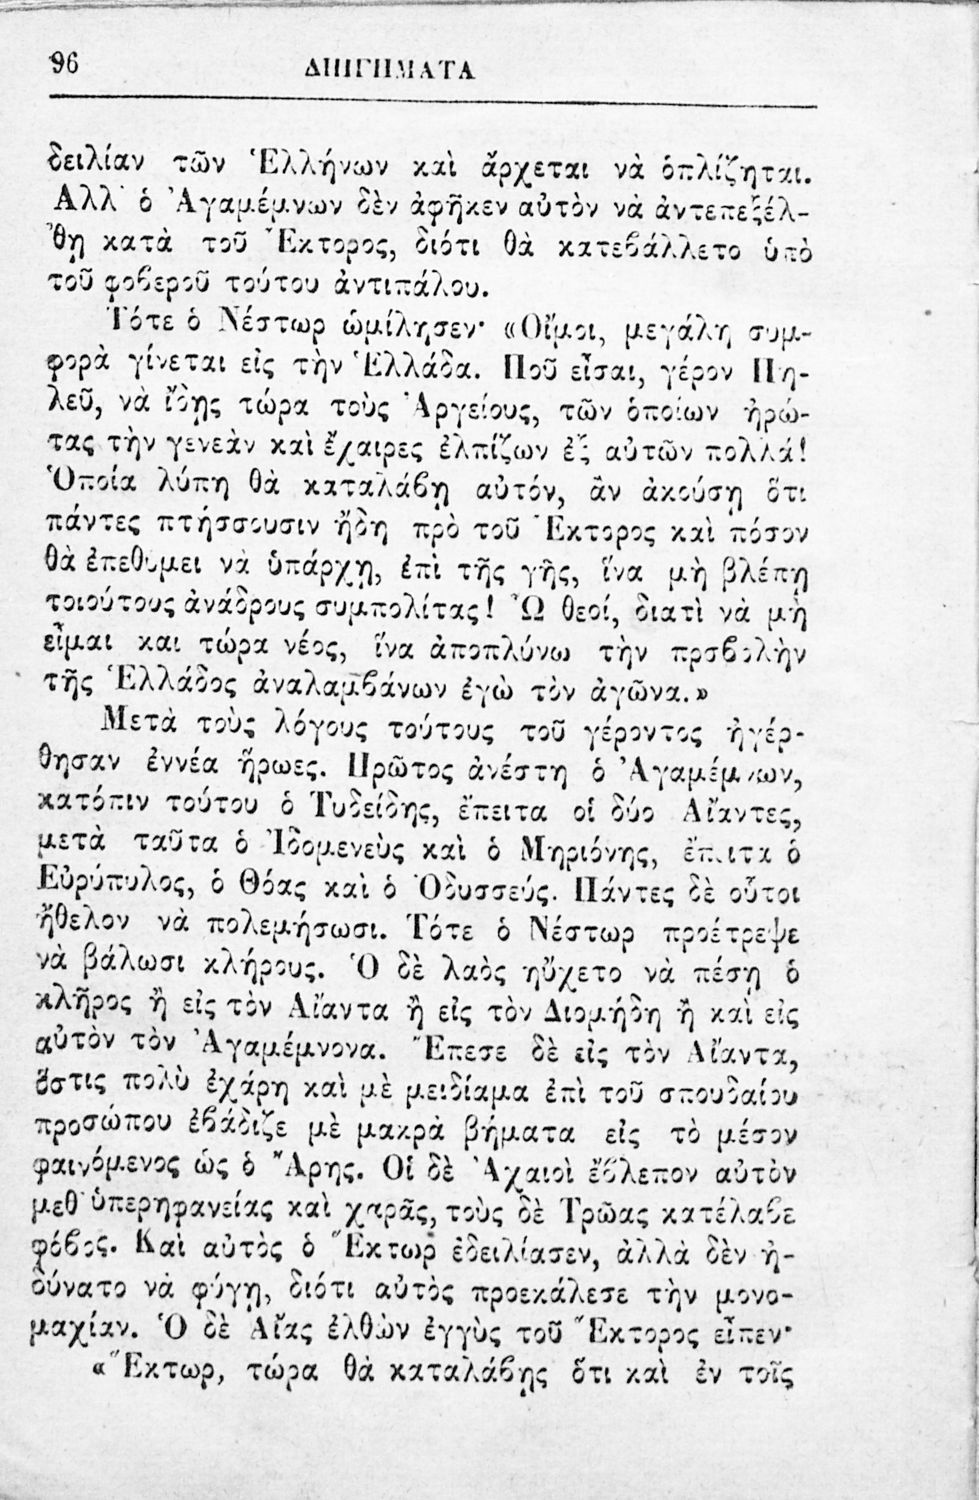 96
ΔΙΗΓΗΜΑΤΑ
δειλίαν τῶν Ἑλλήνων καὶ ἄρχεται νὰ ὁπλίζηται.
Ἀλλ' ὁ Ἀγαμέμνων δὲν ἀφῆκεν αὐτὸν νὰ ἀντεπεξέλ-
θῃ κατὰ τοῦ Ἕκτορος, διότι θὰ κατεβάλλετο ὑπὸ
τοῦ φοβεροῦ τούτου ἀντιπάλου.
Τότε ὁ Νέστωρ ὡμίλησεν· «Οἴμοι, μεγάλη συμ-
φορὰ γίνεται εἰς τὴν Ἑλλάδα. Ποῦ εἶσαι, γέρον Πη-
λεῦ, νὰ ἴδῃς τώρα τοὺς Ἀργείους, τῶν ὁποίων ἠρώ-
τας τὴν γενεὰν καὶ ἔχαιρες ἐλπίζων ἐξ αὐτῶν πολλά!
Ὁποία λύπη θὰ καταλάβῃ αὐτόν, ἂν ἀκούσῃ ὅτι
πάντες πτήσσουσιν ἤδη πρὸ τοῦ Ἕκτορος καὶ πόσον
θὰ ἐπεθύμει νὰ ὑπάρχῃ, ἐπὶ τῆς γῆς, ἵνα μὴ βλέπῃ
τοιούτους ἀνάδρους συμπολίτας! Ὦ θεοί, διατὶ νὰ μὴ
εἶμαι και τώρα νέος, ἵνα ἀποπλύνω τὴν προσβολὴν
τῆς Ἑλλάδος ἀναλαμβάνων ἐγὼ τὸν ἀγῶνα.»
Μετὰ τοὺς λόγους τούτους τοῦ γέροντος ἠγέρ-
θησαν ἐννέα ἥρωες. Πρῶτος ἀνέστη ὁ Ἀγαμέμνων,
κατόπιν τούτου ὁ Τυδείδης, ἔπειτα οἱ δύο Αἴαντες,
μετὰ ταῦτα ὁ Ἰδομενεὺς καὶ ὁ Μηριόνης, ἔπειτα ὁ
Εὐρύπυλος, ὁ Θόας καὶ ὁ Ὀδυσσεύς. Πάντες δὲ οὗτοι
ἤθελον νὰ πολεμήσωσι. Τότε ὁ Νέστωρ προέτρεψε
νὰ βάλωσι κλήρους. Ὁ δὲ λαὸς ηὔχετο νὰ πέσῃ ὁ
κλῆρος ἢ εἰς τὸν Αἴαντα ἢ εἰς τὸν Διομήδη ἢ καὶ εἰς
αὐτὸν τὸν Ἀγαμέμνονα. Ἔπεσε δὲ εἰς τὸν Αἴαντα,
ὅστις πολὺ ἐχάρη καὶ μὲ μειδίαμα ἐπὶ τοῦ σπουδαίου
προσώπου ἐβάδιζε μὲ μακρὰ βήματα εἰς τὸ μέσον
φαινόμενος ὡς ὁ Ἄρης. Οἱ δὲ Ἀχαιοὶ ἔβλεπον αὐτὸν
μεθ' ὑπερηφανείας καὶ χαρᾶς, τοὺς δὲ Τρῶας κατέλαβε
φόβος. Καὶ αὐτὸς ὁ Ἕκτωρ ἐδειλίασεν, ἀλλὰ δὲν ἠ-
δύνατο νὰ φύγῃ, διότι αὐτὸς προεκάλεσε τὴν μονο-
μαχίαν. Ὁ δὲ Αἴας ἐλθὼν ἐγγὺς τοῦ Ἕκτορος εἶπεν·
«Ἕκτωρ, τώρα θὰ καταλάβῃς ὅτι καὶ ἐν τοῖς